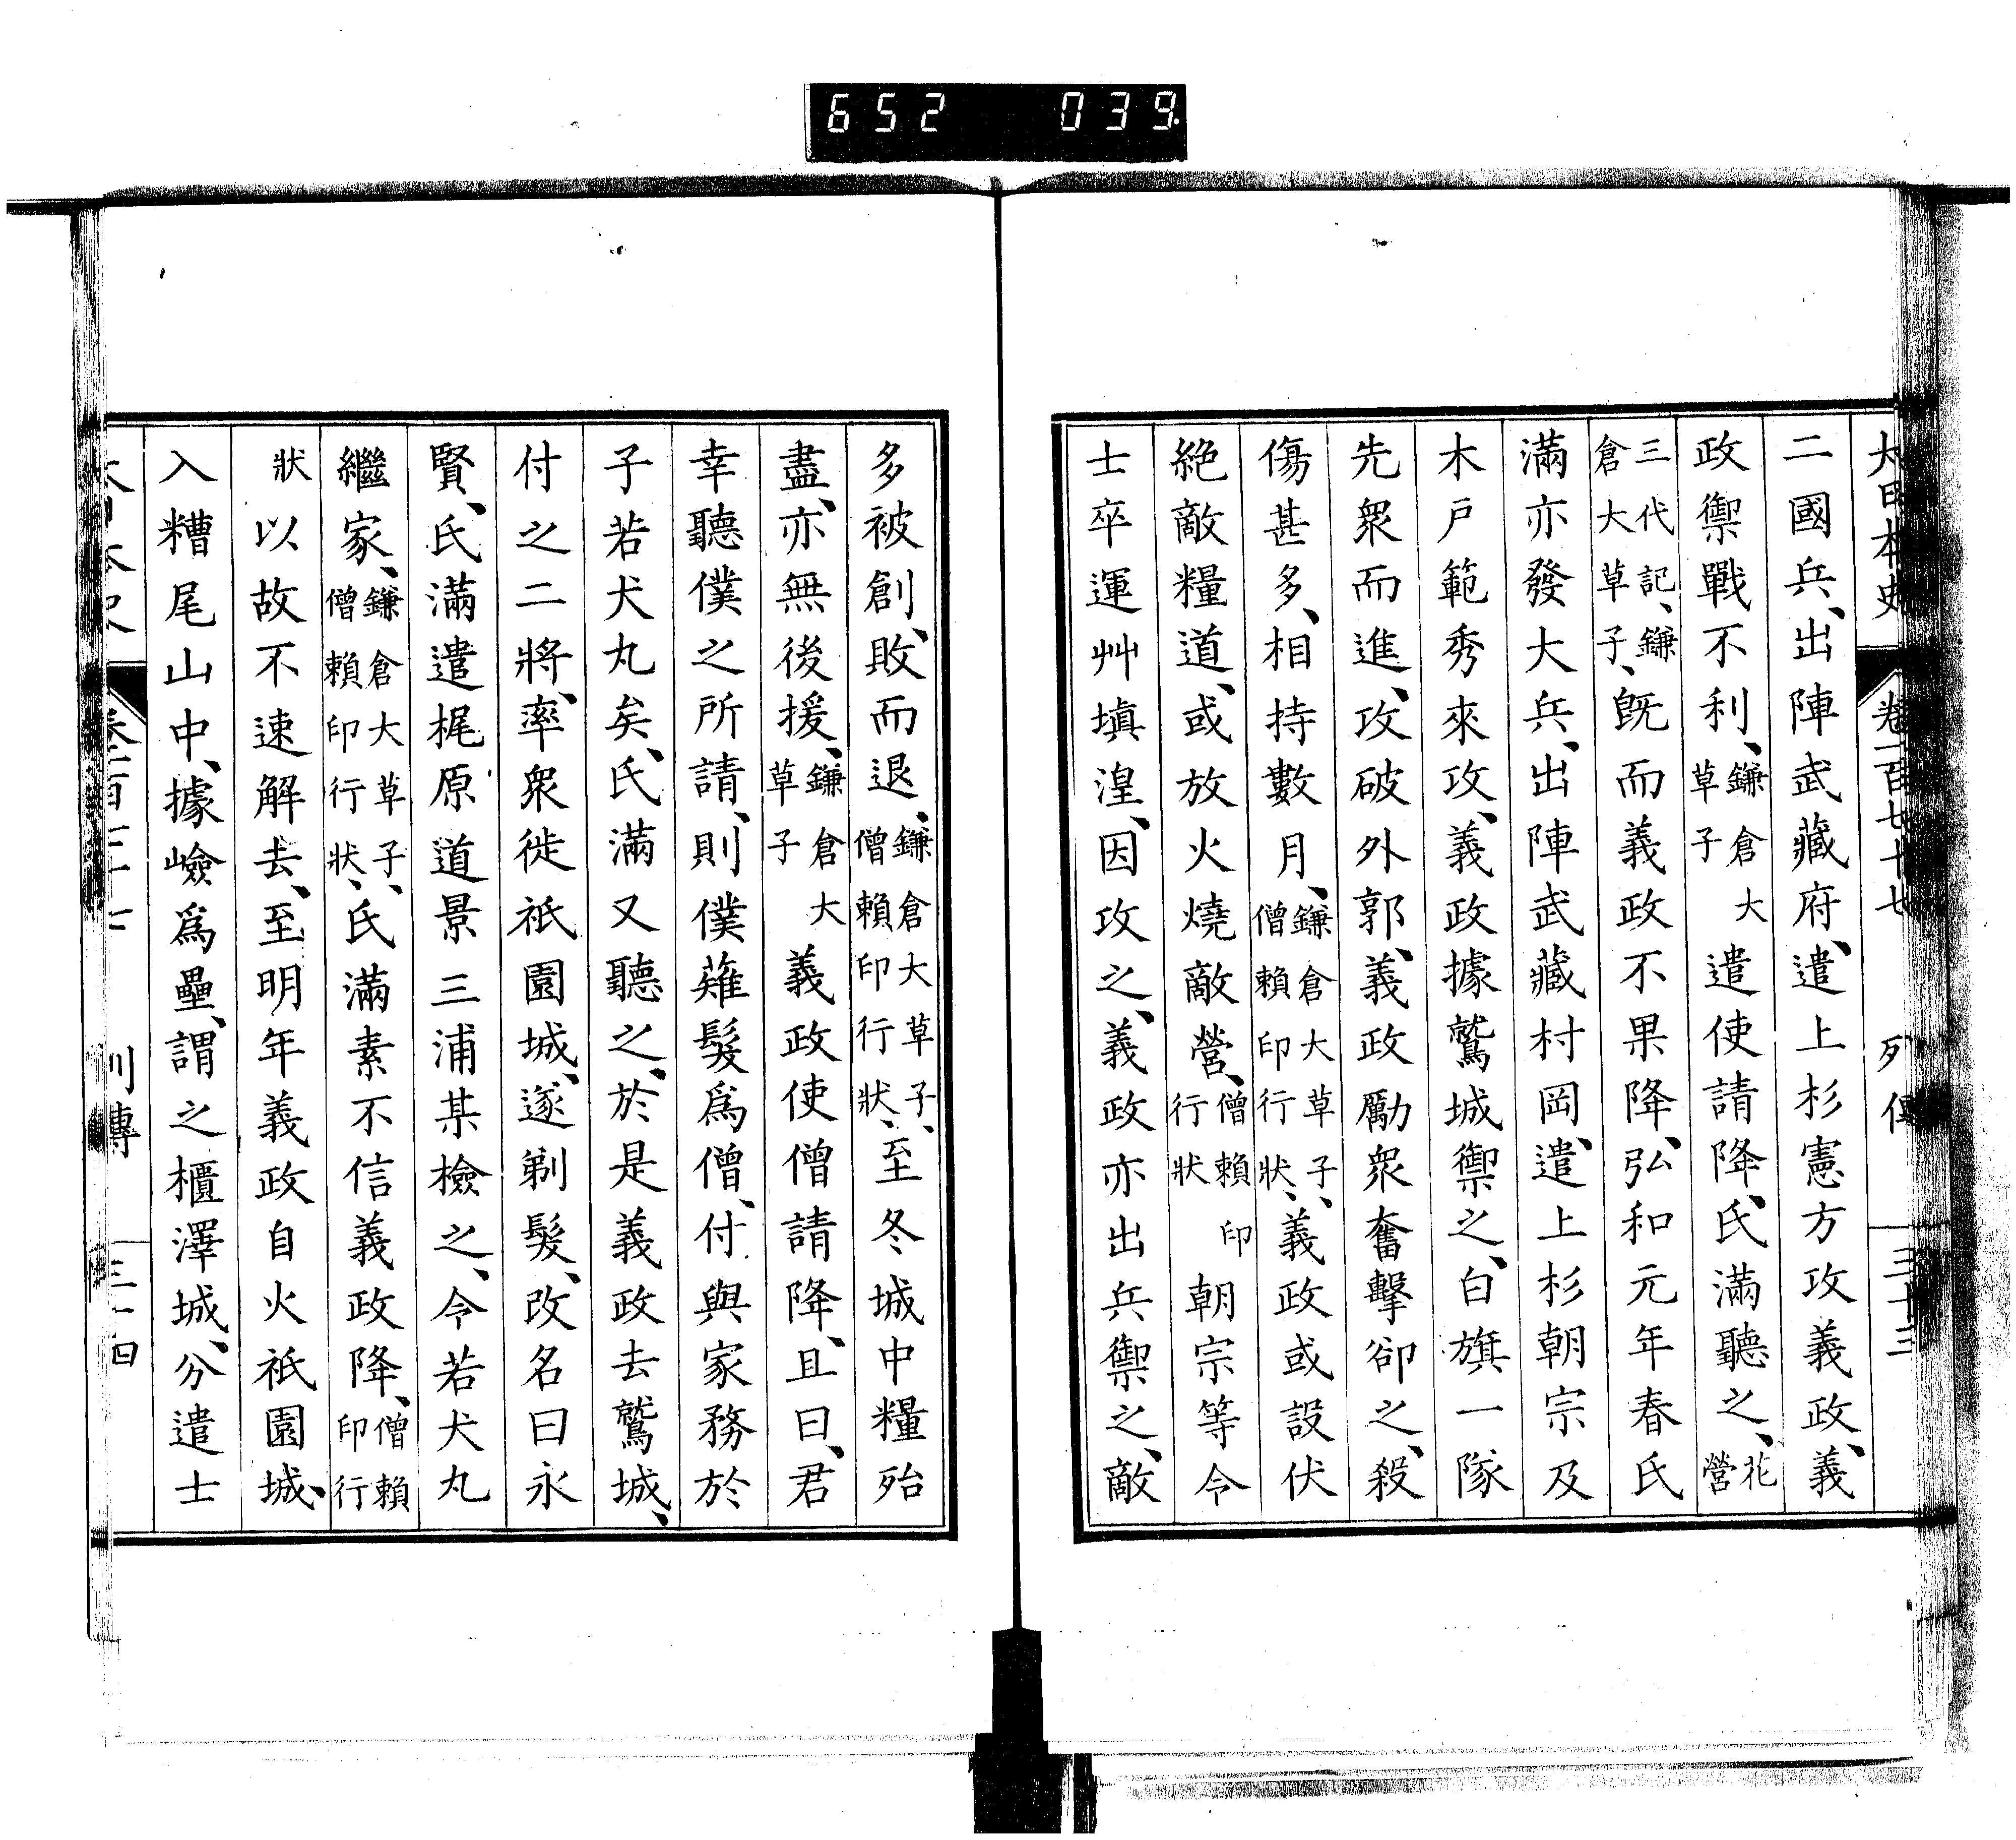 652 039
大日本史 卷一百七十七 列傳 三十三
二國兵、出陣武藏府、遣上杉憲方攻義政、義
政禦戰不利、鎌倉大草子遣使請降、氏滿聽之、花營
三代記、鎌倉大草子、既而義政不果降、弘和元年春氏
滿亦發大兵、出陣武藏村岡、遣上杉朝宗及
木戶範秀來攻、義政據鷲城禦之、白旗一隊
先衆而進、攻破外郭、義政勵衆奮擊卻之、殺
傷甚多、相持數月、鎌倉大草子、僧賴印行狀、義政或設伏
絕敵糧道、或放火燒敵營、僧賴印行狀朝宗等令
士卒運艸塡湟、因攻之、義政亦出兵禦之、敵
多被創、敗而退、鎌倉大草子、僧賴印行狀、至冬城中糧殆
盡、亦無後援、鎌倉大草子義政使僧請降、且曰、君
幸聽僕之所請、則僕薙髮爲僧、付與家務於
子若犬丸矣、氏滿又聽之、於是義政去鷲城、
付之二將、率衆徙祇園城、遂剃髮、改名曰永
賢、氏滿遣梶原道景三浦某檢之、令若犬丸
繼家、鎌倉大草子、僧賴印行狀、氏滿素不信義政降、僧賴印行
狀以故不速解去、至明年義政自火祇園城、
入糟尾山中、據嶮爲壘、謂之櫃澤城、分遣士
列傳